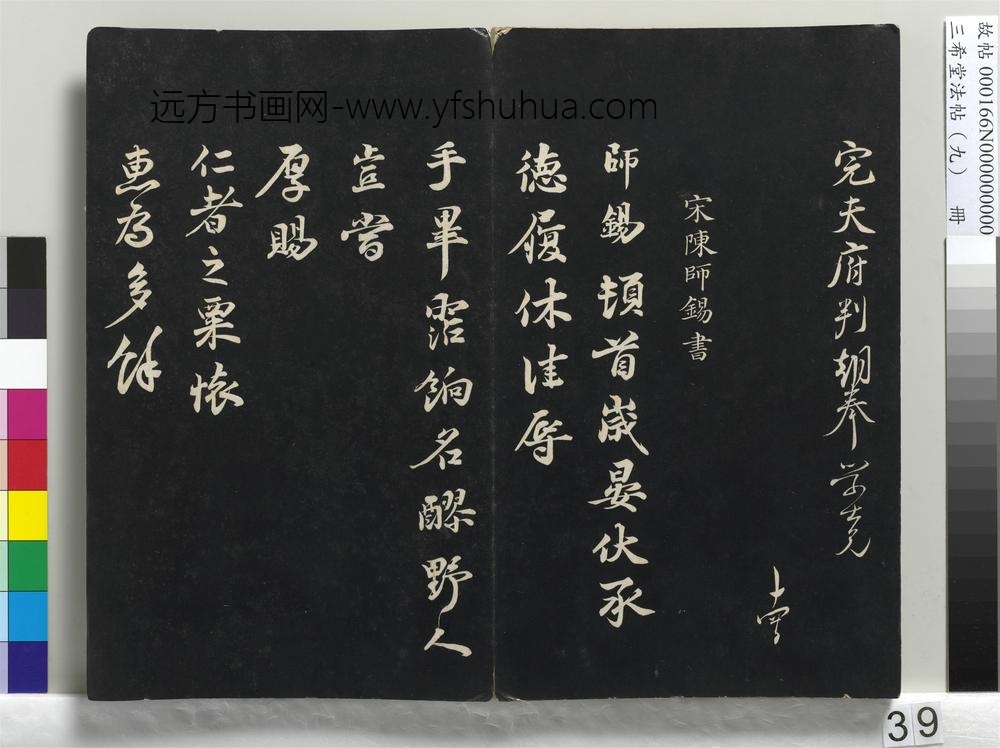 故帖 000166N000000000
三希堂法帖（九） 冊
远方书画网-www.yfshuhua.com
完夫府判朝奉學士兄
宋陳師錫書
師錫頓首歲晏伏承
德履休佳辱
手畢霑餉名醪野人
豈嘗
厚賜
仁者之粟懷
惠為多餘
39